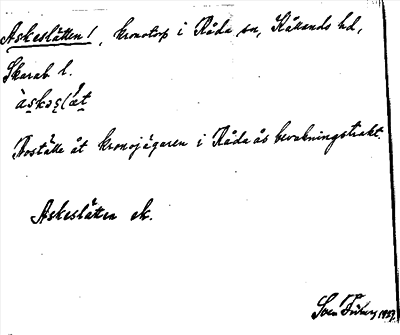 Askeslätten/, kronotorp i Råda sn, Kållands hd,
Skarab. l.
Boställe åt kronojägaren i Råda ås bevakningstrakt.
Askeslätten ek.
Sven